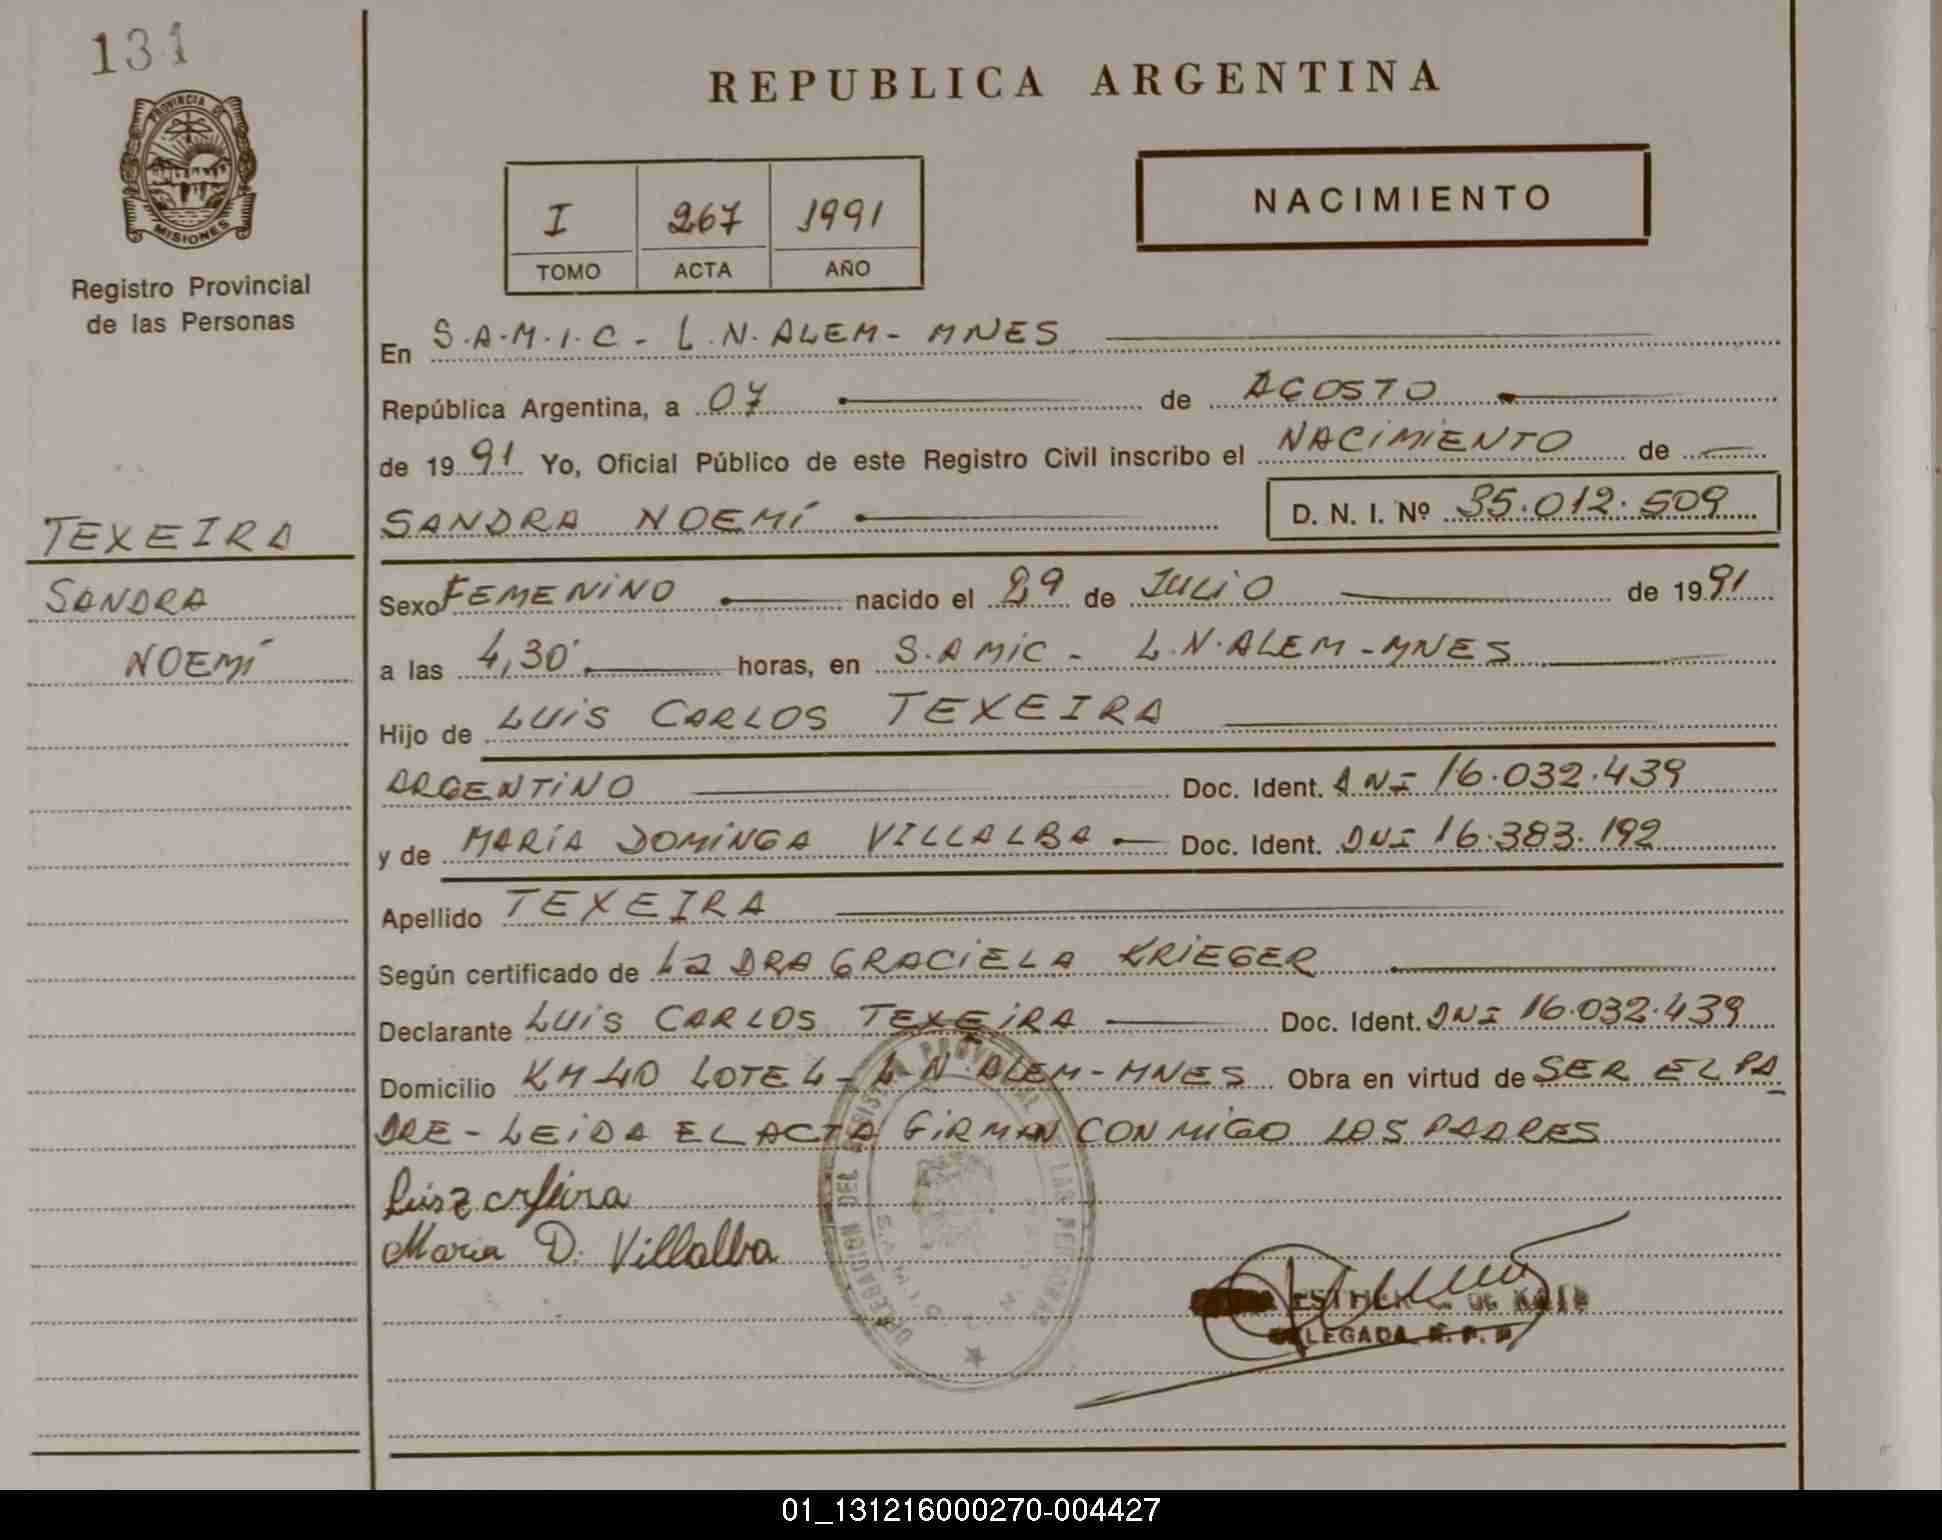 131
PROVINCIA DE
MISIONES
Registro Provincial
de las Personas
TEXEIRA
SANDRA
NOEMÍ
REPUBLICA ARGENTINA
I 267 1991
TOMO ACTA AÑO
NACIMIENTO
En S.A.M.I.C - L.N.ALEM - MNES
República Argentina, a 07 de AGOSTO
de 1991 Yo, Oficial Público de este Registro Civil inscribo el NACIMIENTO de
SANDRA NOEMÍ D. N. I. Nº 35.012.509
Sexo FEMENINO nacido el 29 de JULIO de 1991
a las 4,30 horas, en S.AMIC - L.N.ALEM - MNES
Hijo de LUIS CARLOS TEXEIRA
ARGENTINO Doc. Ident. DNI 16.032.439
y de MARÍA DOMINGA VILLALBA Doc. Ident. DNI 16.383.192
Apellido TEXEIRA
Según certificado de LA DRA GRACIELA KRIEGER
Declarante LUIS CARLOS TEXEIRA Doc. Ident. DNI 16.032.439
Domicilio KM 40 LOTE 4 - L.N.ALEM - MNES Obra en virtud de SER EL PA
DRE - LEIDA EL ACTA FIRMAN CONMIGO LOS PADRES
Maria D. Villalba
DELEGACION DEL REGISTRO PROVINCIAL DE LAS PERSONAS
S.A.M.I.C. L.N.
ESTHER
DELEGADA R. P. P.
01_131216000270-004427